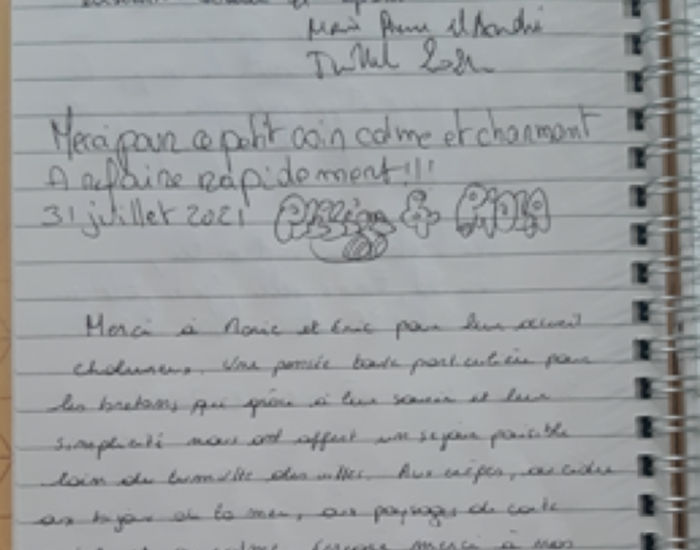 Marie Anne et André
Juillet 2021
Merci pour ce petit coin calme et charmant
A refaire rapidement!!!
31 juillet 2021 &
Merci à Marie et Eric pour leur accueil
chaleureux. Une pensée toute particulière pour
les bretons, qui grâce à leur sourire et leur
simplicité nous ont offert un séjour paisible
loin du tumulte des villes. Aux crêpes, au cidre
au bijou de la mer, aux paysages de carte
merci à nos